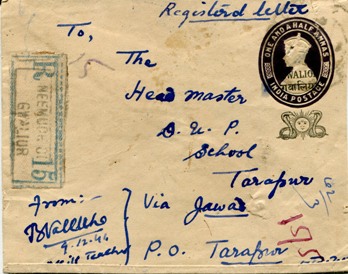 Registered letter
To,
The
Head master
D. U. P.
School
Tarapur
Via Jawad
P. O. Tarapur
ONE AND A HALF ANNAS
INDIA POSTAGE
GWALIOR
गवालियर
R
GWALIOR
15
From:-
9.12.44